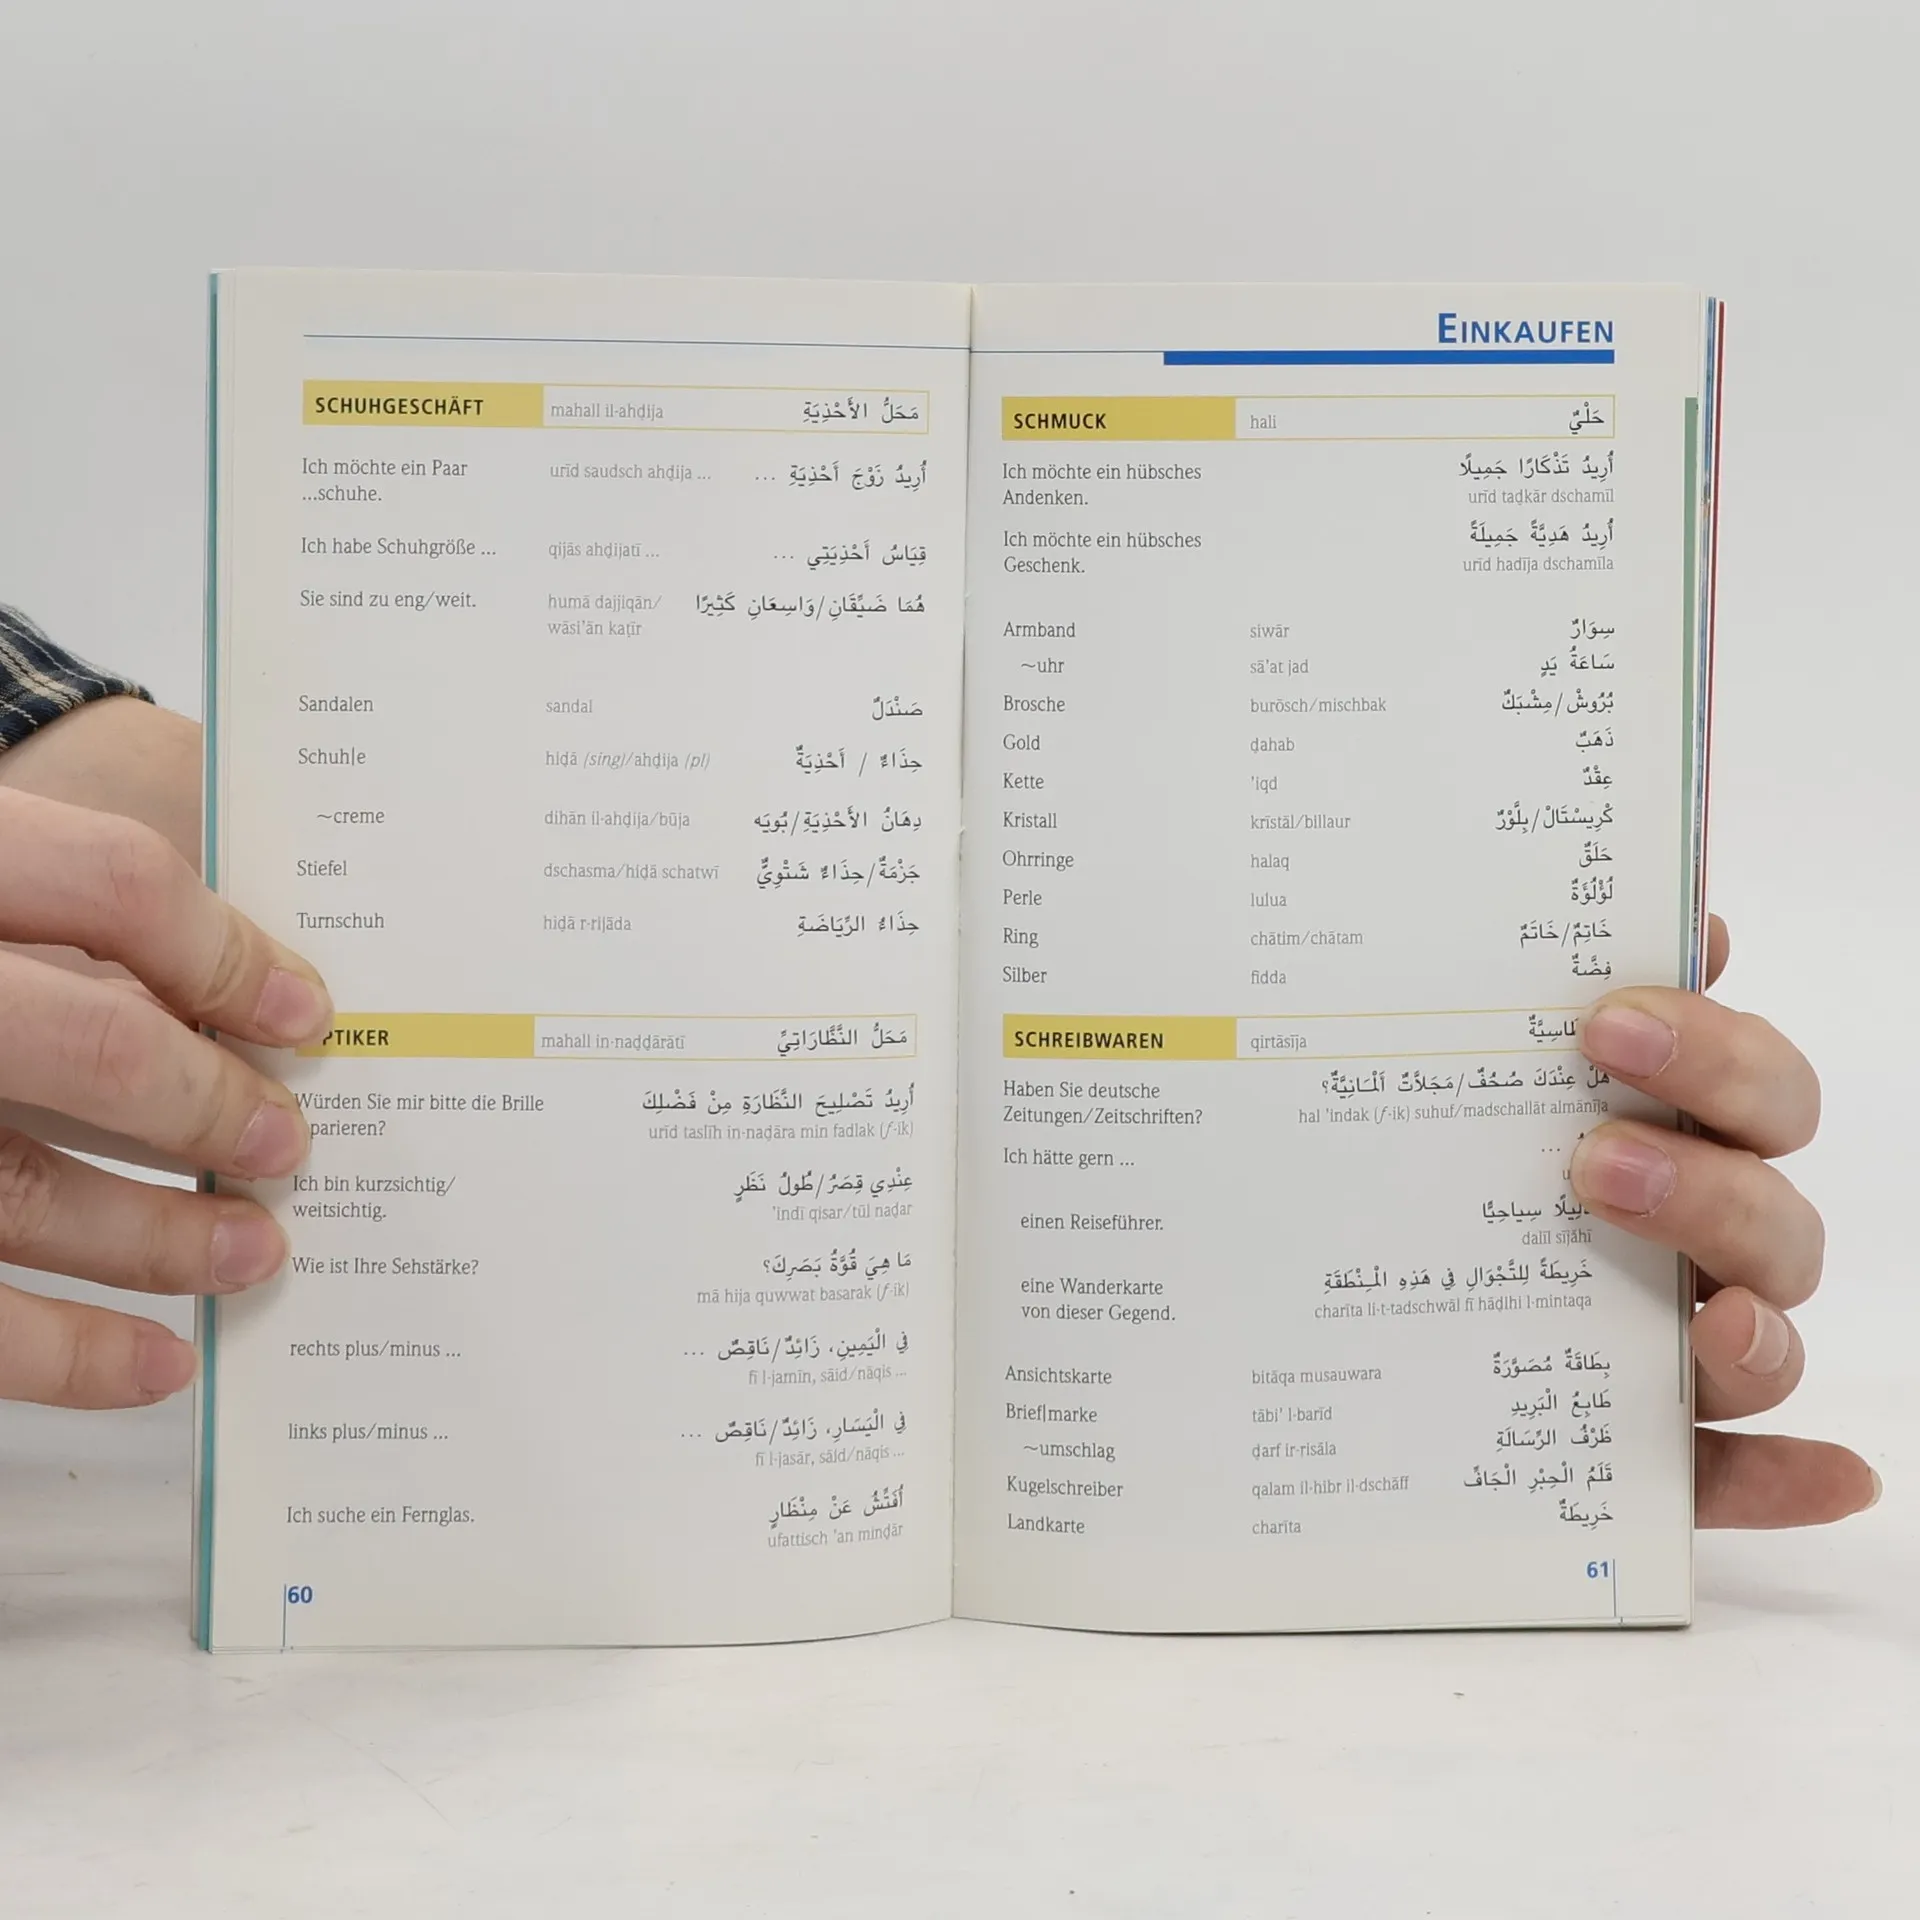 SCHUHGESCHÄFT mahall il-ahḍija مَحَلُّ الأَحْذِيَةِ
Ich möchte ein Paar urīd saudsch ahḍija ... أُرِيدُ زَوْجَ أَحْذِيَةِ ...
...schuhe.
Ich habe Schuhgröße ... qijās ahḍijatī ... قِيَاسُ أَحْذِيَتِي ...
Sie sind zu eng/weit. humā dajjiqān/ هُمَا ضَيِّقَانِ/وَاسِعَانِ كَثِيرًا
wāsi'ān kaṭīr
Sandalen sandal صَنْدَلٌ
Schuh|e hiḍā (sing)/ahḍija (pl) حِذَاءٌ / أَحْذِيَةٌ
~creme dihān il-ahḍija/būja دِهَانُ الأَحْذِيَةِ/بُويَه
Stiefel dschasma/hiḍā schatwī جَزْمَةٌ/حِذَاءٌ شَتْوِيٌّ
Turnschuh hiḍā r-rijāda حِذَاءُ الرِّيَاضَةِ
PTIKER mahall in-naḍḍārātī مَحَلُّ النَّظَّارَاتِيِّ
Würden Sie mir bitte die Brille أُرِيدُ تَصْلِيحَ النَّظَارَةِ مِنْ فَضْلِكَ
parieren? urīd taslīh in-naḍāra min fadlak (f-ik)
Ich bin kurzsichtig/ عِنْدِي قِصَرُ/طُولُ نَظَرٍ
weitsichtig. 'indī qisar/tūl naḍar
Wie ist Ihre Sehstärke? مَا هِيَ قُوَّةُ بَصَرِكَ؟
mā hija quwwat basarak (f-ik)
rechts plus/minus ... فِي الْيَمِينِ، زَائِدٌ/نَاقِصٌ ...
fī l-jamīn, sāid/nāqis ...
links plus/minus ... فِي الْيَسَارِ، زَائِدٌ/نَاقِصٌ ...
fī l-jasār, sāid/nāqis ...
Ich suche ein Fernglas. أُفَتِّشُ عَنْ مِنْظَارٍ
ufattisch 'an minḍār
60
EINKAUFEN
SCHMUCK hali حَلْيٌ
Ich möchte ein hübsches أُرِيدُ تَذْكَارًا جَمِيلًا
Andenken. urīd taḍkār dschamīl
Ich möchte ein hübsches أُرِيدُ هَدِيَّةً جَمِيلَةً
Geschenk. urīd hadīja dschamīla
Armband siwār سِوَارٌ
~uhr sā'at jad سَاعَةُ يَدٍ
Brosche burōsch/mischbak بُرُوشْ/مِشْبَكٌ
Gold ḍahab ذَهَبٌ
Kette 'iqd عِقْدٌ
Kristall krīstāl/billaur كْرِيسْتَالْ/بِلَّوْرٌ
Ohrringe halaq حَلَقٌ
Perle lulua لُؤْلُؤَةٌ
Ring chātim/chātam خَاتِمٌ/خَاتَمٌ
Silber fidda فِضَّةٌ
SCHREIBWAREN qirtāsīja
Haben Sie deutsche هَلْ عِنْدَكَ صُحُفٌ/مَجَلاَّتٌ أَلْمَانِيَّةٌ؟
Zeitungen/Zeitschriften? hal 'indak (f-ik) suhuf/madschallāt almānīja
Ich hätte gern ... ...
einen Reiseführer. سِيَاحِيًّا
dalīl sījāhī
eine Wanderkarte خَرِيطَةً لِلتَّجْوَالِ فِي هَذِهِ الْمِنْطَقَةِ
von dieser Gegend. charīta li-t-tadschwāl fī hāḍihi l-mintaqa
Ansichtskarte bitāqa musauwara بِطَاقَةٌ مُصَوَّرَةٌ
Brief|marke tābi' l-barīd طَابِعُ الْبَرِيدِ
~umschlag ḍarf ir-risāla ظَرْفُ الرِّسَالَةِ
Kugelschreiber qalam il-hibr il-dschāff قَلَمُ الْحِبْرِ الْجَافِّ
Landkarte charīta خَرِيطَةٌ
61